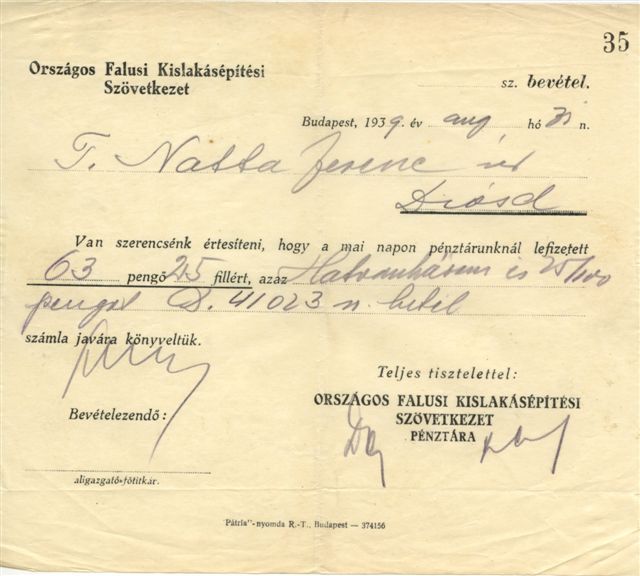 35
Országos Falusi Kislakásépítési
Szövetkezet
sz. bevétel.
Budapest, 1939. év aug hó 31 n.
T. Natta Ferenc úr
Diósd
Van szerencsénk értesíteni, hogy a mai napon pénztárunknál lefizetett
63 pengő 25 fillért, azaz Hatvanhárom és 25/100
pengőt D. 41023 n. betét
számla javára könyveltük.
Teljes tisztelettel:
ORSZÁGOS FALUSI KISLAKÁSÉPÍTÉSI
SZÖVETKEZET
PÉNZTÁRA
Bevételezendő:
aligazgató-főtitkár.
"Pátria"-nyomda R.-T., Budapest — 374156